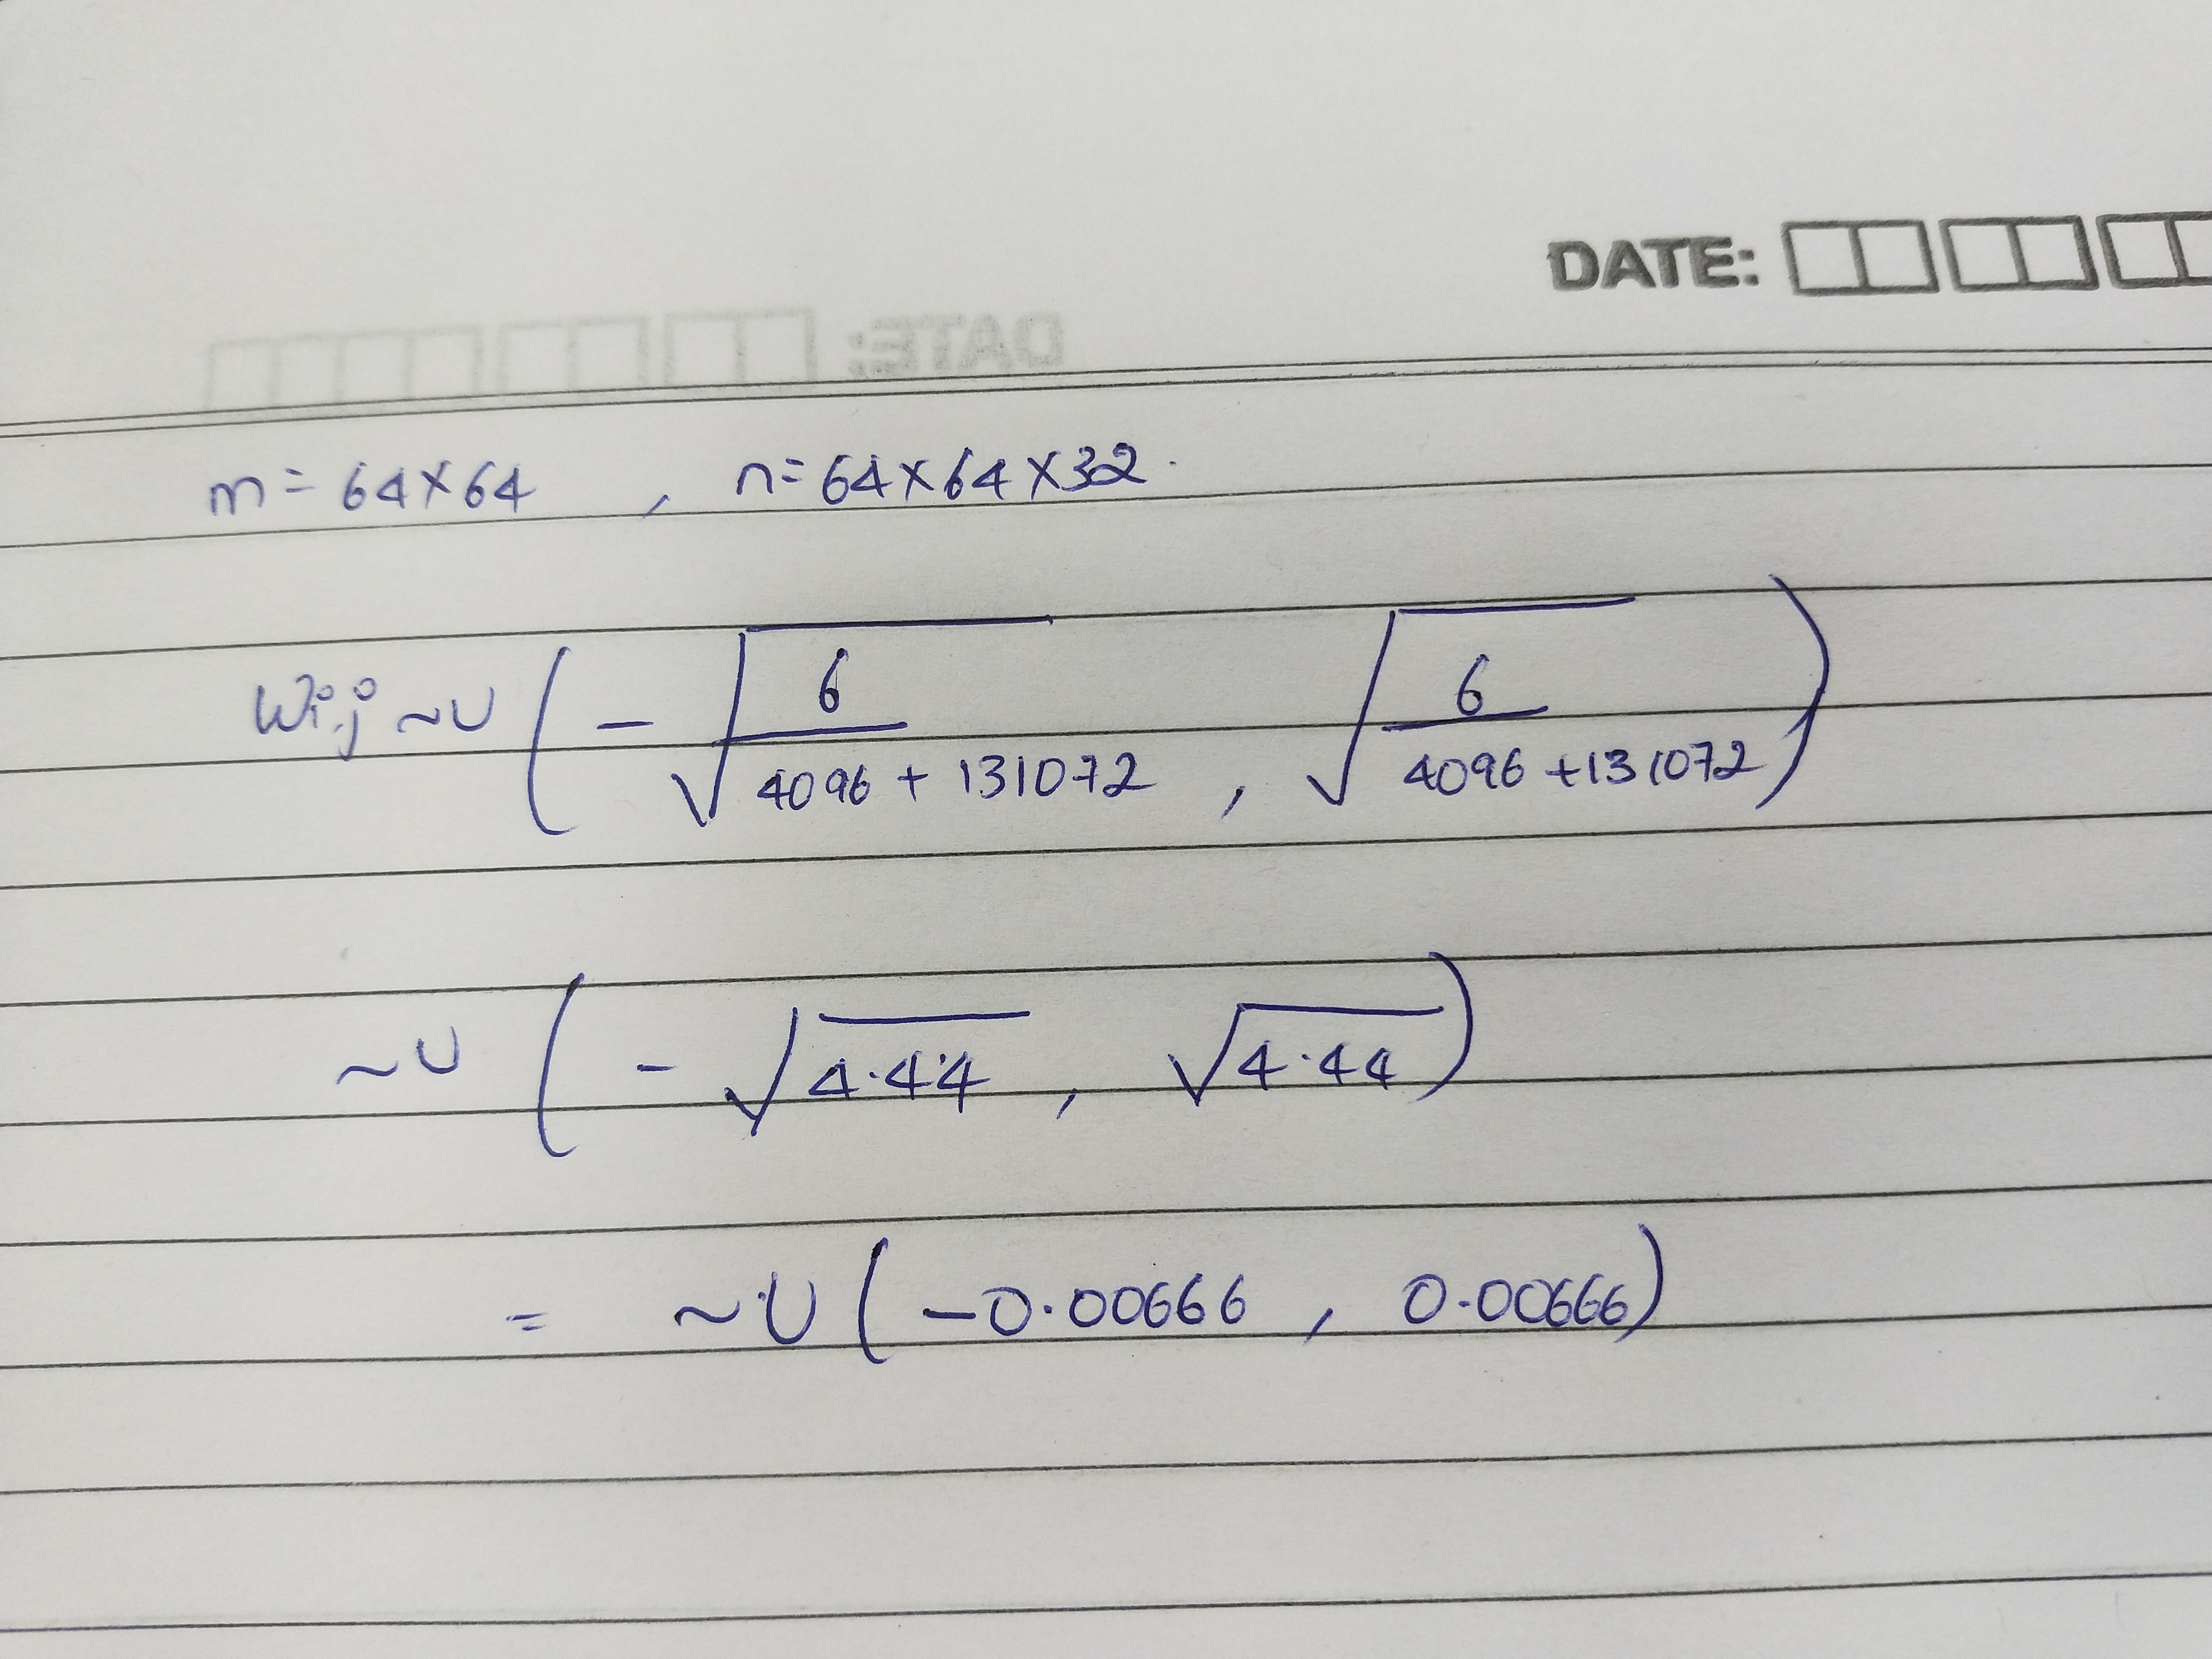 DATE:
DATE:
m = 64×64 , n = 64×64×32.
Wi,j ~U ( - √(6 / 4096 + 131072) , √(6 / 4096 + 131072) )
~U ( - √4.44 , √4.44 )
= ~U ( -0.00666 , 0.00666 )